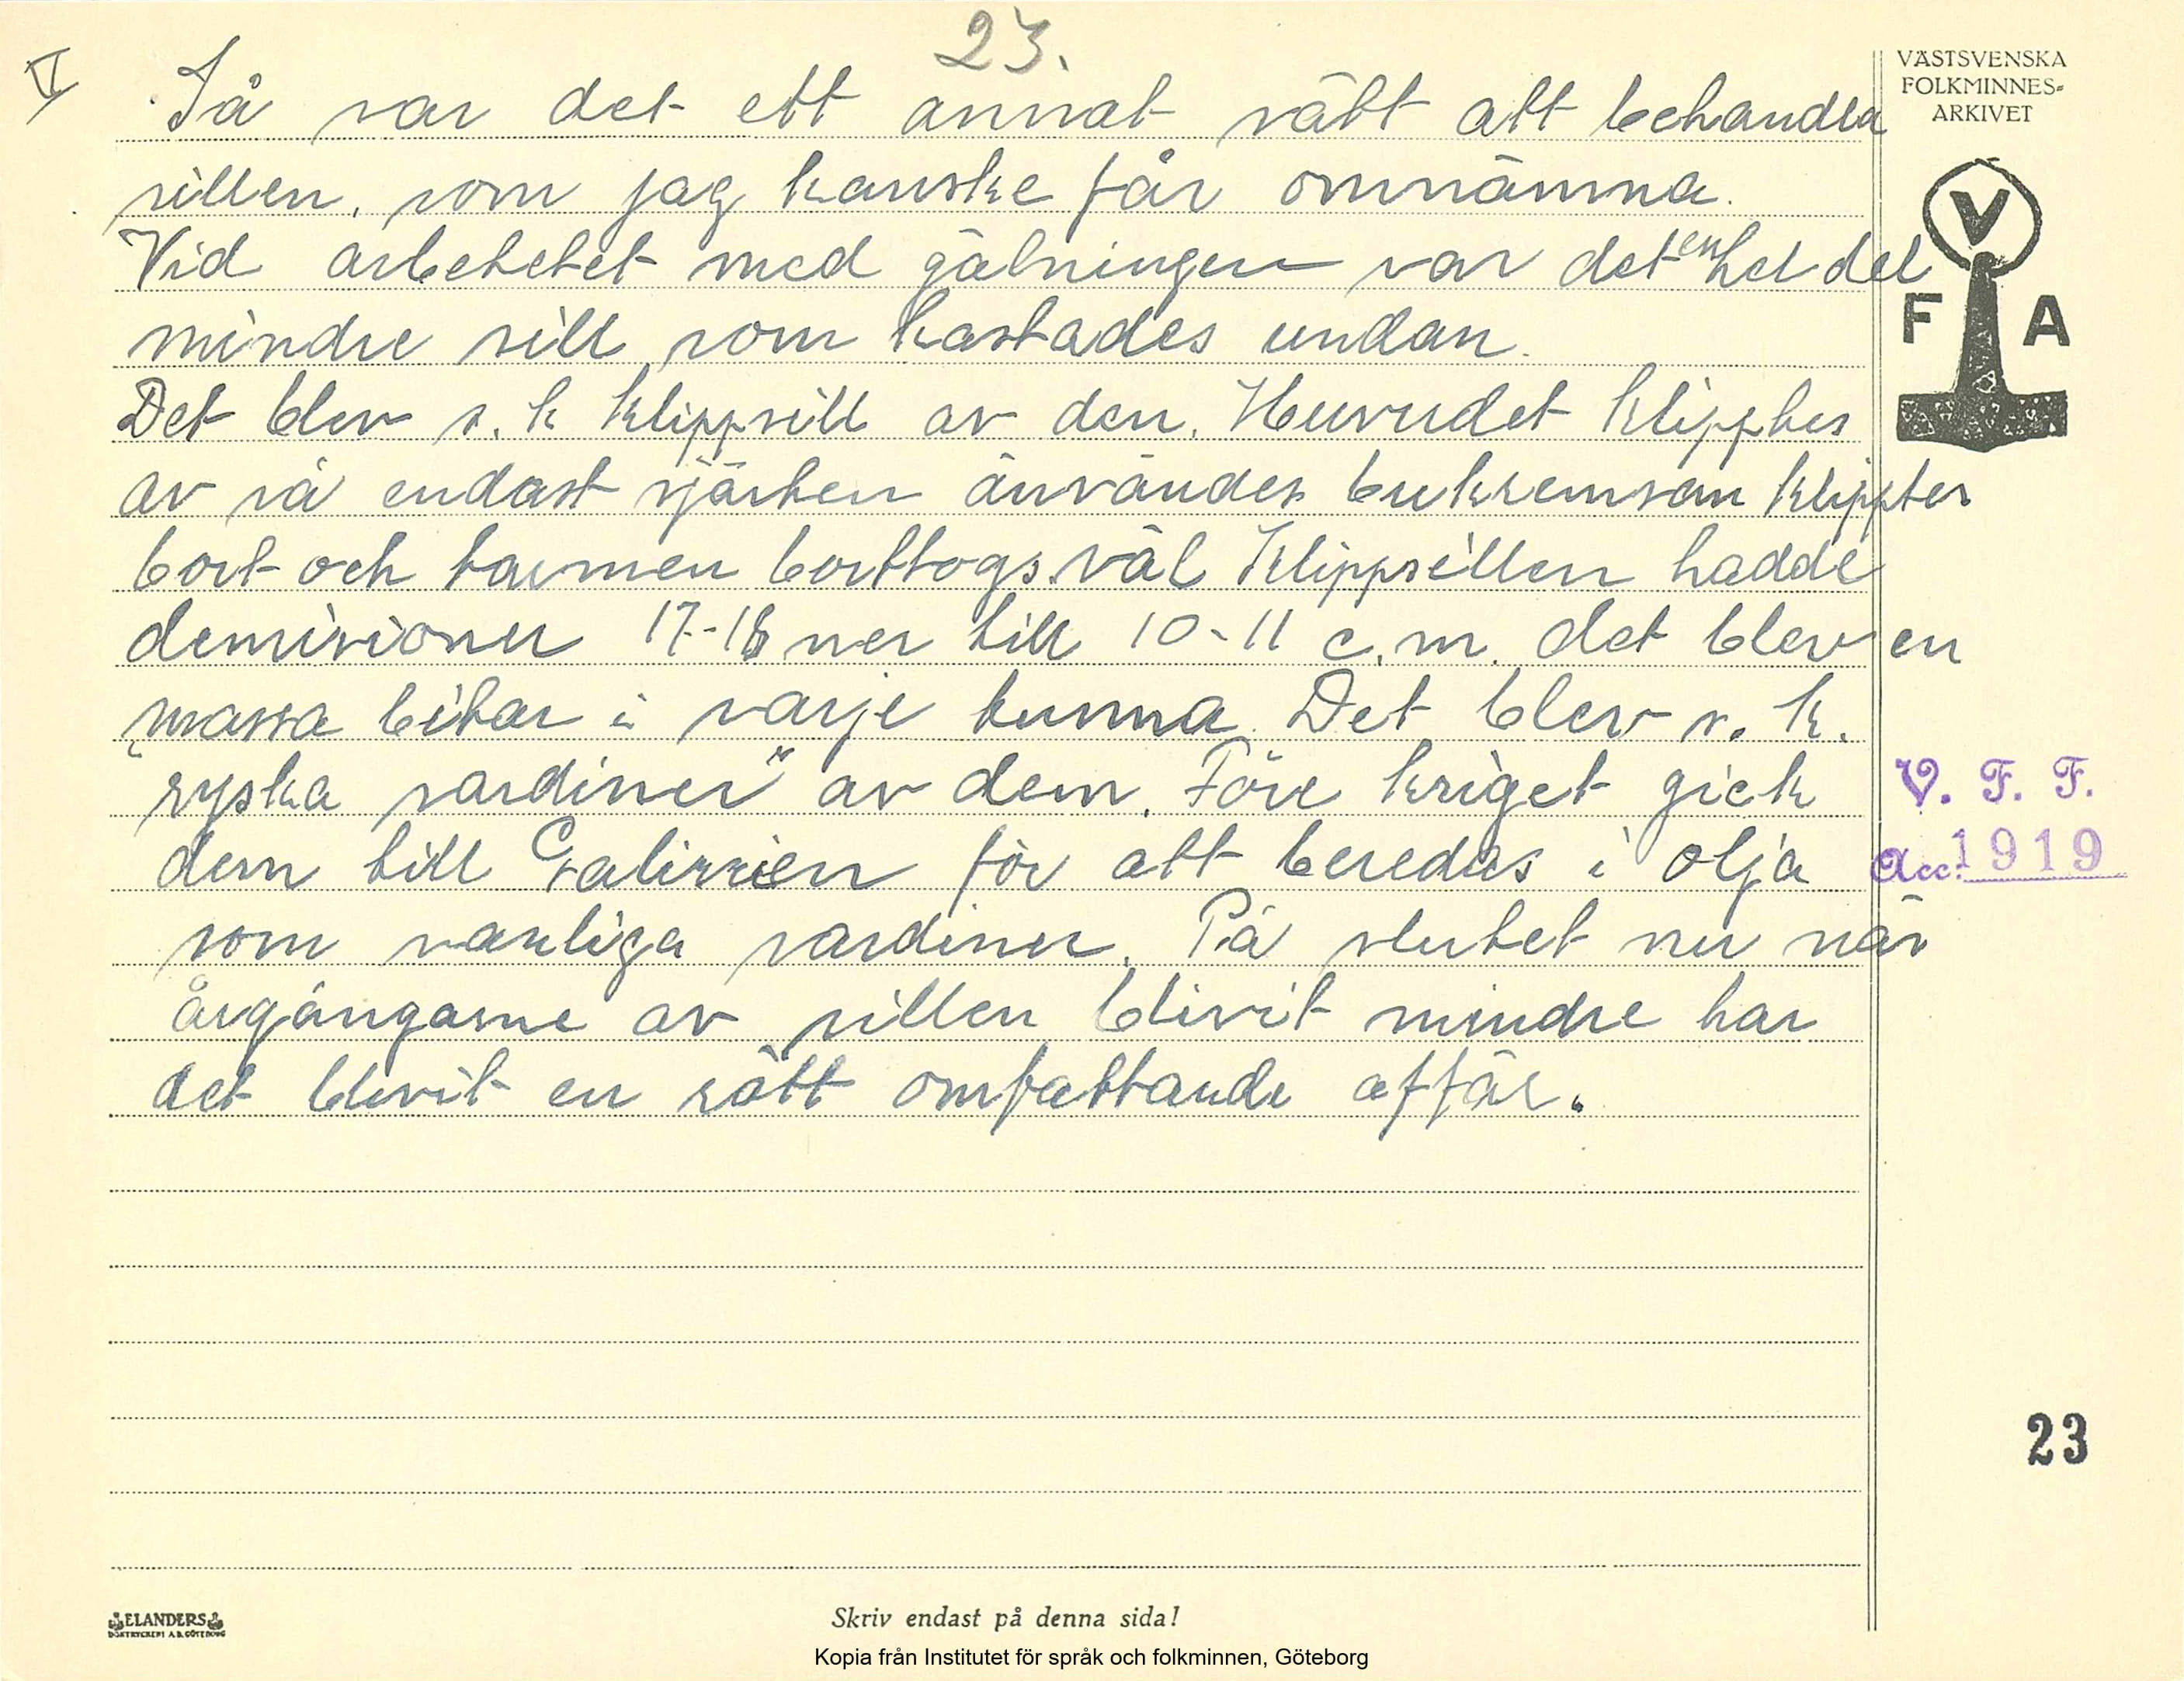 23.
Så var det ett annat sätt att behandla
sillen, som jag kanske får omnämna.
Vid arbetetet med gälningen var det en hel del
mindre sill som kastades undan.
Det blev s. k klippsill av den. Huvudet klipptes
av så endast stjärten användes bukremsan klipptes
bort och tarmen borttogs. väl Klippsillen hadde
demisioner 17-18 ner till 10-11 c.m. det blev en
massa bitar i varje tunna. Det blev s. k.
"ryska sardiner" av dem. Före kriget gick
dem till Galizien för att beredas i olja
som vanliga sardiner. På slutet nu när
årgångarne av sillen blivit mindre har
det blivit en rätt omfattande affär.
VÄSTSVENSKA
FOLKMINNES-
ARKIVET
V
F A
V. F. F.
Acc. 1919
23
ELANDERS
BOKTRYCKERI A.B. GÖTEBORG
Skriv endast på denna sida!
Kopia från Institutet för språk och folkminnen, Göteborg